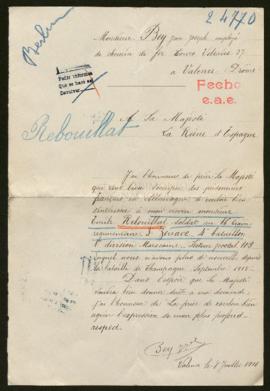 24770
Berlin
Monsieur Bey Jean Joseph employé
de chemin de fer
à Valence Drôme
Pedir informes
Que se hará del
Devolver
Fecho
e.a.e.
Rebouillat
A Sa Majesté
La Reine d'Espagne
J'ai l'honneur de prier Sa Majesté
qui veut bien s'occuper des prisonniers
français en Allemagne de vouloir bien
s'intéresser à mon neveu monsieur
Emile Rebouillat, soldat au
régiment de Zouave 4e bataillon
division Marocaine. Secteur postal 108
duquel nous n'avons plus de nouvelle depuis
la bataille de Champagne Septembre 1915.
Dans l'espoir que Sa Majesté
voudra bien donner suite à ma demande
j'ai l'honneur de La prier de vouloir bien
agréer l'expression de mon plus profond
respect.
Bey
Valence le Juillet 1916